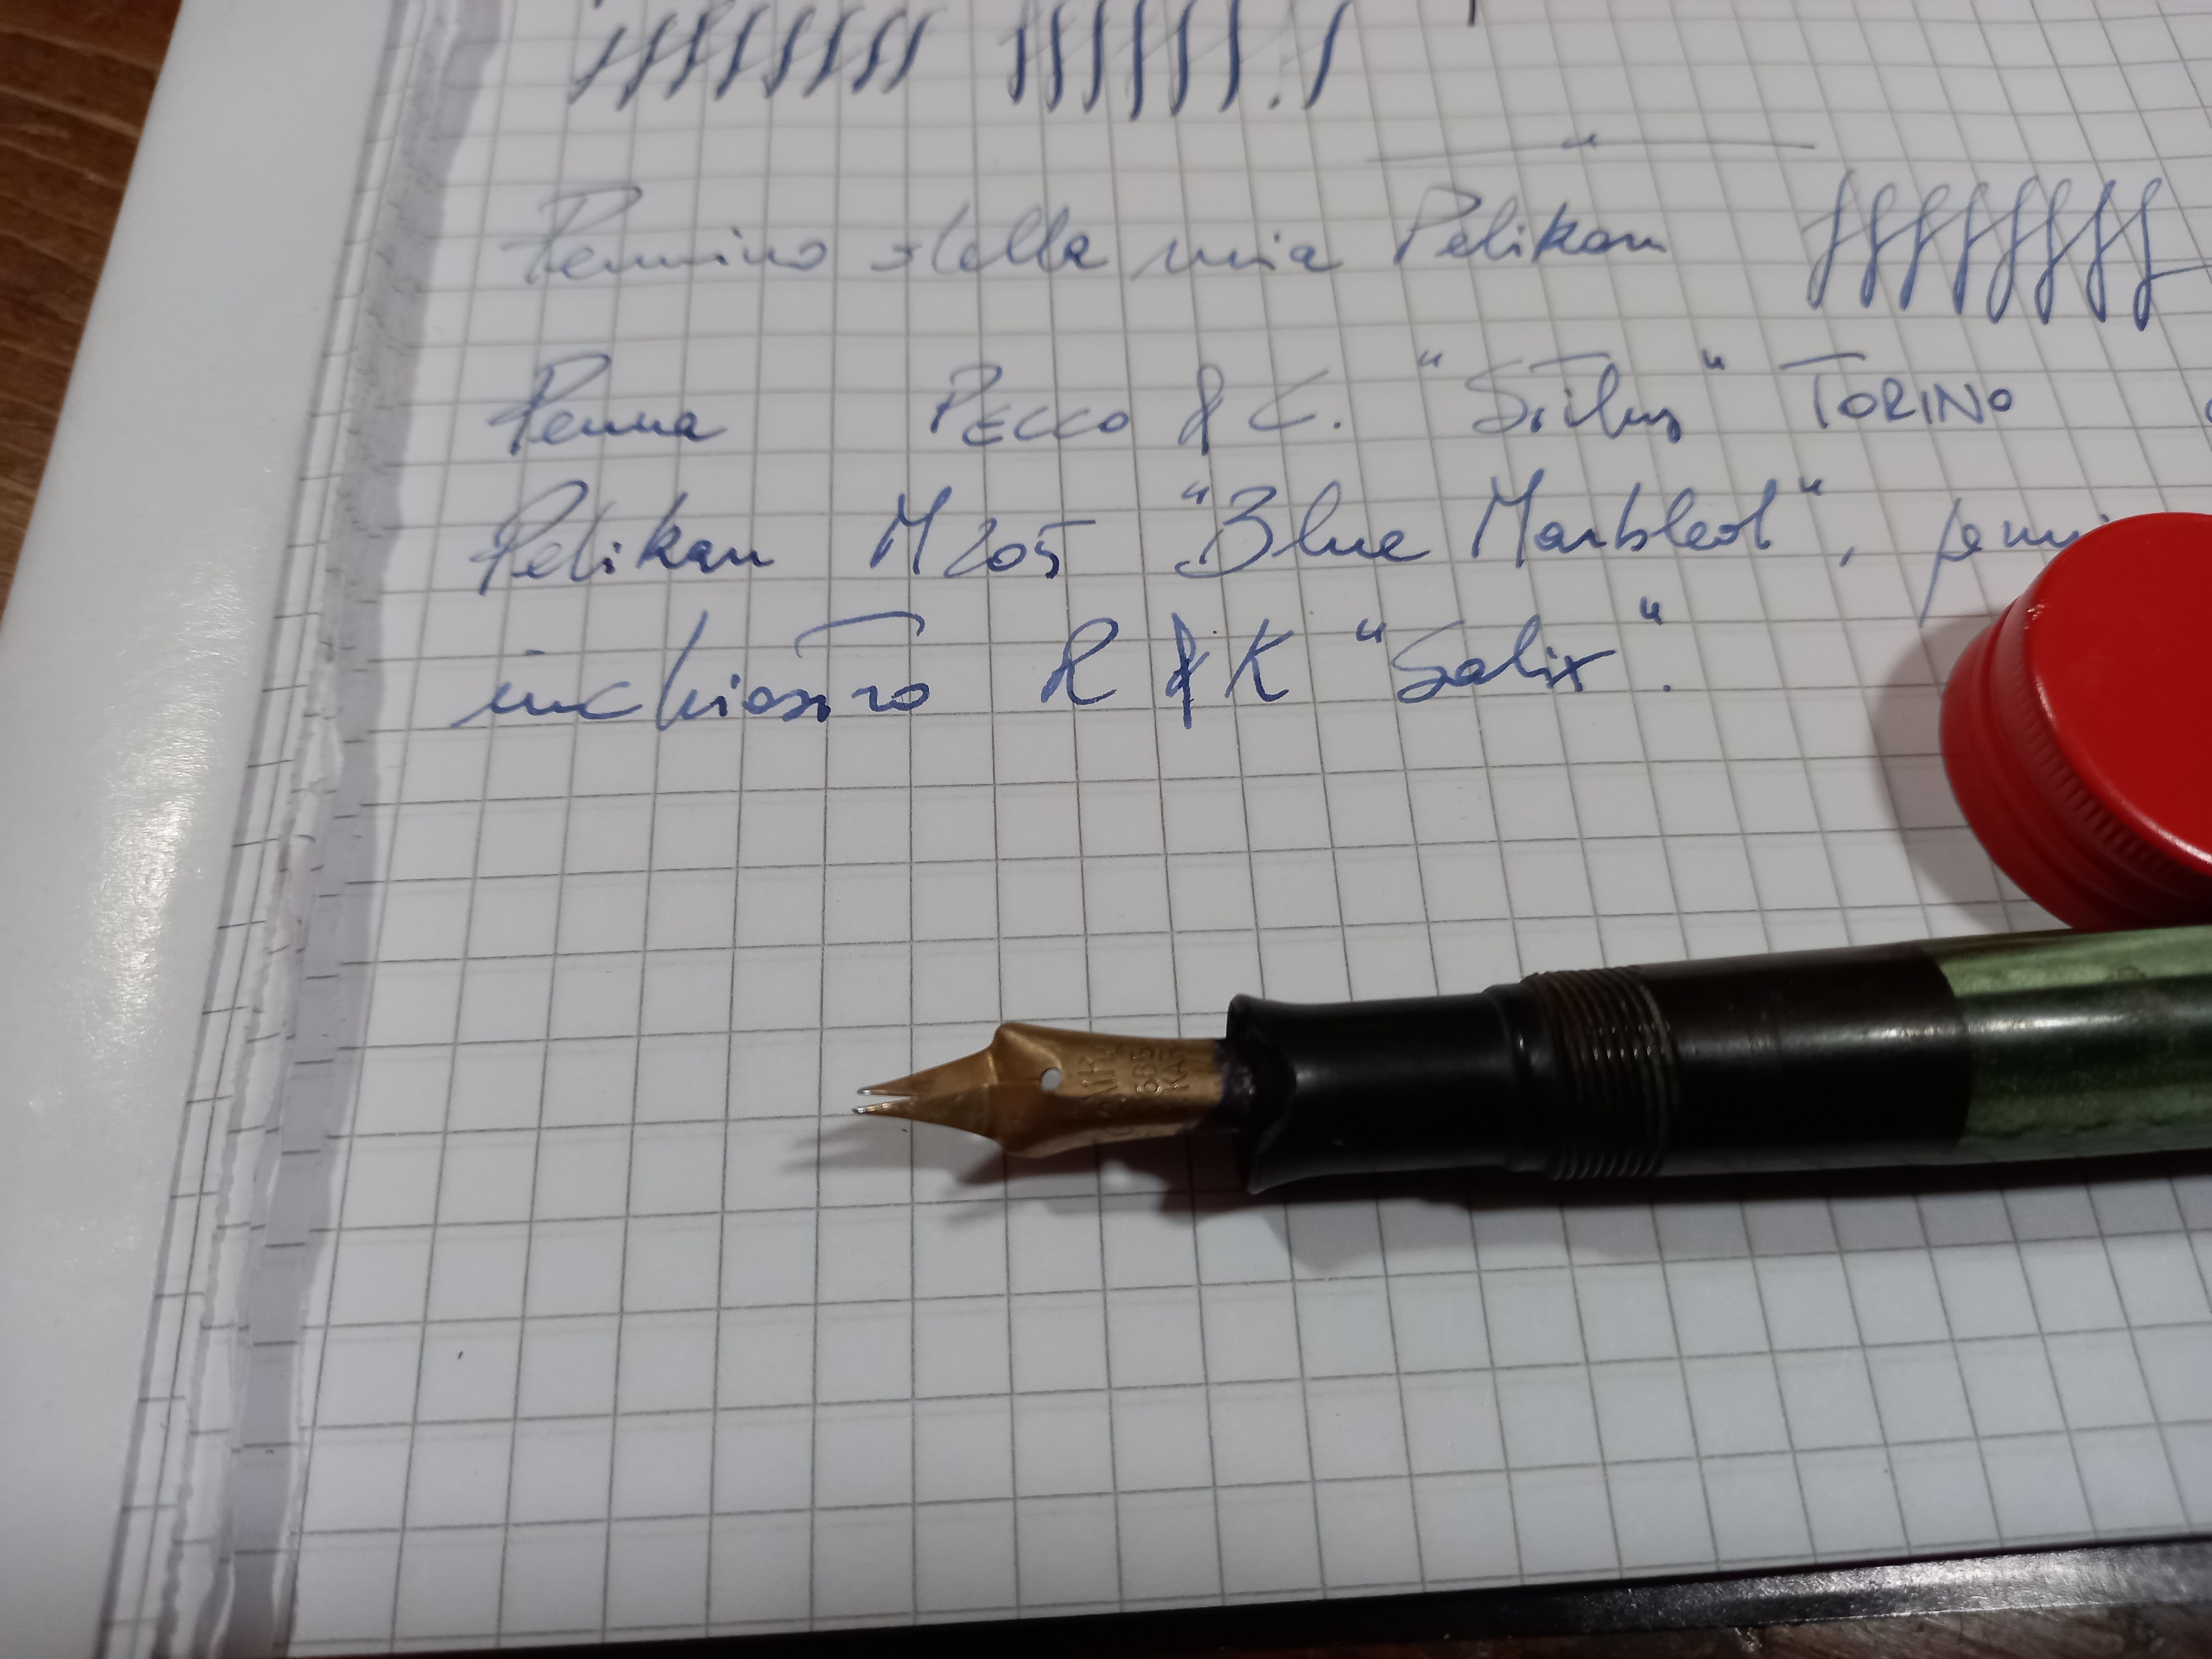 Pennino della mia Pelikan
Penna PECCO & C. "Stilus" TORINO
Pelikan M205 "Blue Marbled",
inchiostro R & K "Salix".
585